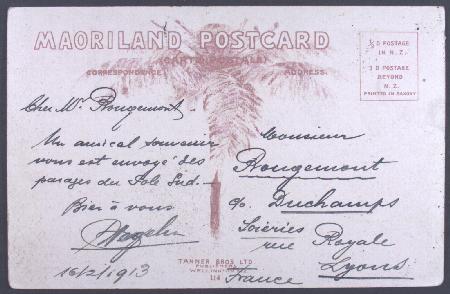 MAORILAND POSTCARD
(CARTE POSTALE)
CORRESPONDENCE
ADDRESS.
½D POSTAGE
IN N.Z.
1D POSTAGE
BEYOND
N.Z.
PRINTED IN SAXONY
Cher Mr. Rougemont
Un amical souvenir
vous est envoyé des
parages du Pole Sud.
Bien à vous
16/2/1913
Monsieur
Rougemont
c/o Duchamps
Soieries
rue Royale
Lyons
France
TANNER BROS LTD
PUBLISHERS
WELLINGTON
114